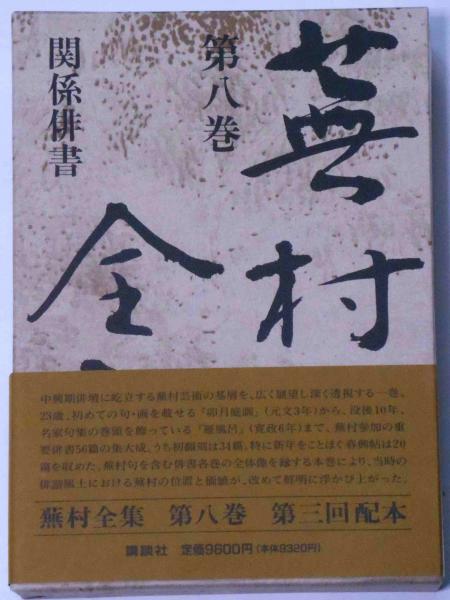 蕪村
全
第八巻
関係俳書
中興期俳壇に屹立する蕪村芸術の基層を、広く展望し深く透視する一巻。
23歳、初めての句・画を載せる『卯月庭訓』(元文3年)から、没後10年、
名家句集の巻頭を飾っている『雁風呂』(寛政6年)まで、蕪村参加の重
要俳書56篇の集大成。うち初翻刻は34篇。特に新年をことほぐ春興帖は20
篇を収めた。蕪村句を含む俳書各巻の全体像を録する本巻により、当時の
俳諧風土における蕪村の位置と価値が、改めて鮮明に浮かび上がった。
蕪村全集 第八巻 第三回配本
講談社 定価9600円(本体9320円)